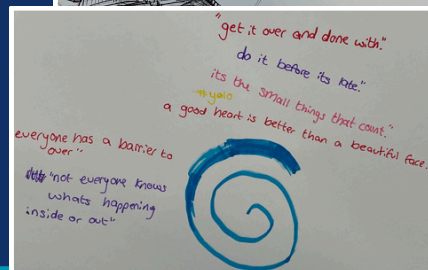 "get it over and done with."
do it before its late."
its the small things that count."
#yolo
a good heart is better than a beautiful face.
everyone has a barrier to
over"
"not everyone knows
whats happening
inside or out"